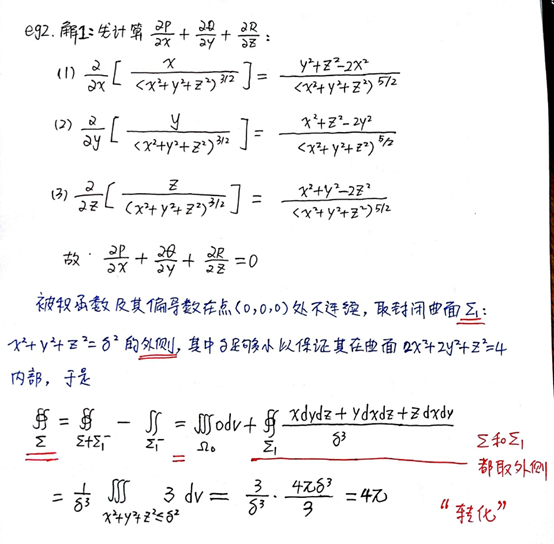 eg2. 解1: 先计算 ∂P/∂x + ∂Q/∂y + ∂R/∂z :
(1) ∂/∂x [ x/(x²+y²+z²)^{3/2} ] = (y²+z²-2x²)/(x²+y²+z²)^{5/2}
(2) ∂/∂y [ y/(x²+y²+z²)^{3/2} ] = (x²+z²-2y²)/(x²+y²+z²)^{5/2}
(3) ∂/∂z [ z/(x²+y²+z²)^{3/2} ] = (x²+y²-2z²)/(x²+y²+z²)^{5/2}
故 ∂P/∂x + ∂Q/∂y + ∂R/∂z = 0
被积函数及其偏导数在点(0,0,0)处不连续, 取封闭曲面Σ₁:
x²+y²+z²=δ²的外侧, 其中δ足够小以保证其在曲面 2x²+2y²+z²=4
内部, 于是
∯_Σ = ∯_{Σ+Σ₁⁻} - ∬_{Σ₁⁻} = ∭_{Ω₀} 0dv + ∯_{Σ₁} (xdydz+ydxdz+zdxdy)/δ³
Σ和Σ₁
都取外侧
= 1/δ³ ∭_{x²+y²+z²≤δ²} 3 dv = 3/δ³ · 4πδ³/3 = 4π
“转化”